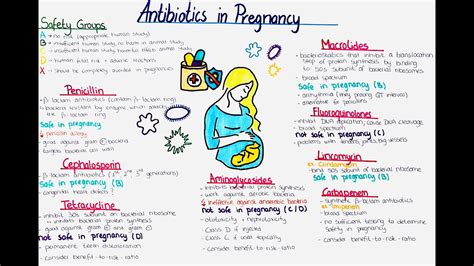 Antibiotics in Pregnancy
Safety Groups
A → no risk (appropriate human study)
B → insufficient human study, no harm in animal study
C → insufficient human study, harmful effects animal study
D → human fetal risk + adverse reactions
X → should be completely avoided in pregnancies
Penicillin
β-lactam antibiotics (contain β-lactam ring)
bacterial cell wall
safe in pregnancy (B)
penicillin allergy
good against gram ⊕ bacteria
targets bacterial cell wall
Cephalosporin
β-lactam antibiotics (1st, 2nd, 3rd generation)
safe in pregnancy (B)
Tetracycline
inhibit 30S subunit of bacterial ribosome
inhibits bacterial protein synthesis
good against gram ⊕ and gram ⊖
not safe in pregnancy (D)
permanent teeth discoloration
consider benefit-to-risk-ratio
Aminoglycosides
inhibits bacterial protein synthesis
work against aerobic bacteria
ineffective against anaerobic bacteria
not safe in pregnancy (C/D)
ototoxicity + nephrotoxicity
Class D if injected
Class C if used topically
consider benefit-to-risk-ratio
Macrolides
bacteriostatics that inhibit a translocation
step of protein synthesis by binding
to 50S subunit of bacterial ribosomes
broad spectrum
safe in pregnancy (B)
arrhythmia (may prolong QT interval)
alternative for penicillins
Fluoroquinolones
inhibit DNA replication, cause DNA cleavage
broad spectrum
not safe in pregnancy (C)
Lincomycin
ex Clindamycin
safe in pregnancy (B)
Carbapenem
ex Imipenem
synthetic β-lactam antibiotics
broad spectrum
no sufficient testing to determine
safety in pregnancy
consider benefit-to-risk-ratio